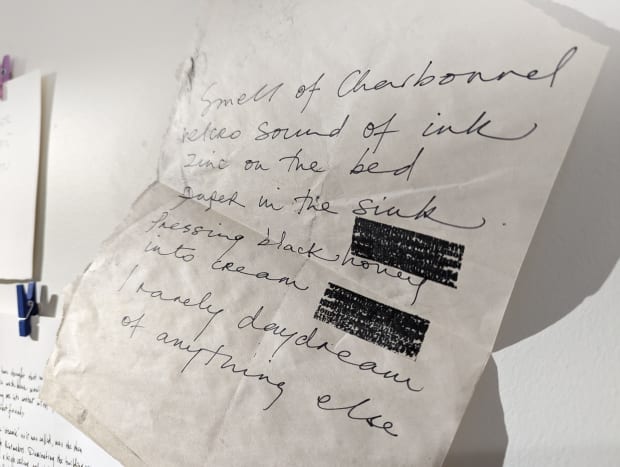 Smell of Charbonnel
velcro sound of ink
Zinc on the bed
paper in the sink
Pressing black honey
into cream
I rarely daydream
of anything else